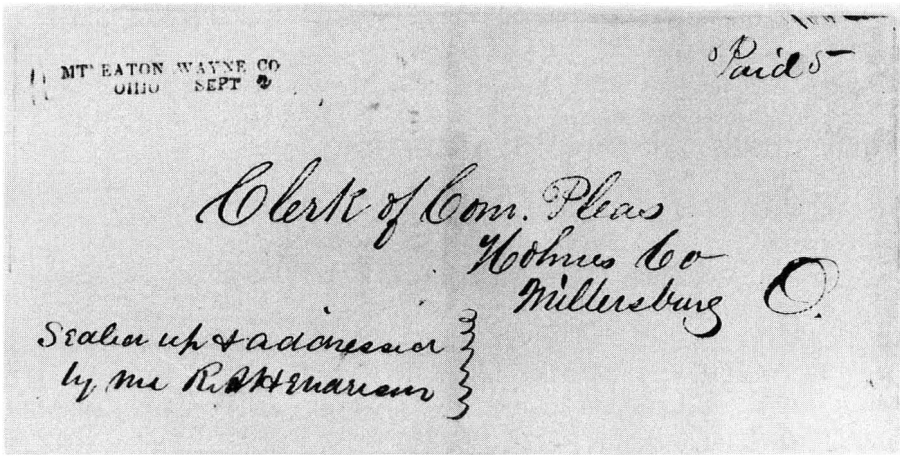 MT EATON WAYNE CO
OHIO SEPT 2
Paid 5
Clerk of Com. Pleas
Holmes Co
Millersburg O.
Sealed up & addressed
by me